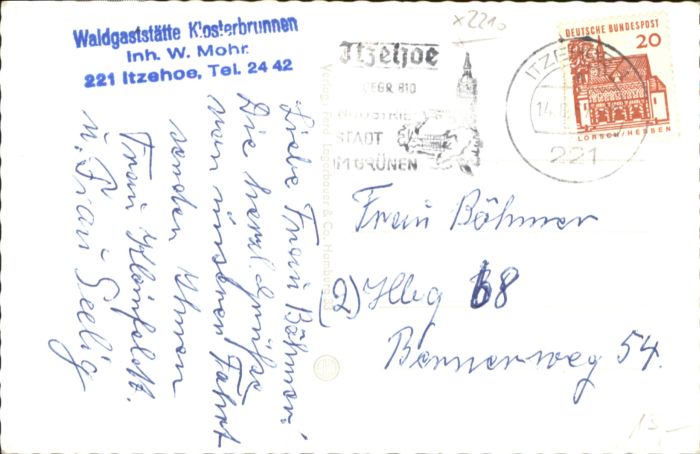 Waldgaststätte Klosterbrunnen
Inh. W. Mohr
221 Itzehoe, Tel. 24 42
x2210
Itzehoe
GEGR. 810
INDUSTRIE
STADT
IM GRÜNEN
ITZEHOE
14.
221
DEUTSCHE BUNDESPOST
20
LORSCH/HESSEN
Verlag Ferd. Lagerbauer & Co. Hamburg
Liebe Frau Böhmer!
Die herzl. Grüße
von unserer Fahrt
senden Ihnen
Frau Kleinfeldt.
u. Frau Seelig
Frau Böhmer
(2) Hbg 68
Bennerweg 54.
13,-